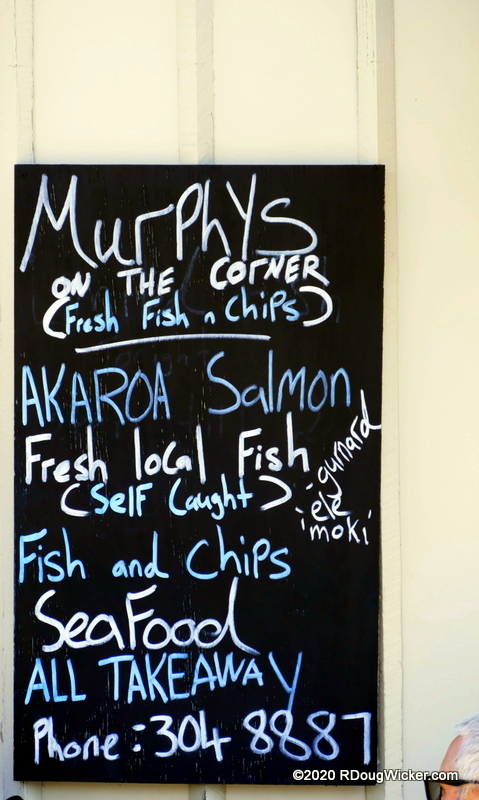 Murphys
ON THE CORNER
(Fresh Fish n Chips)
AKAROA Salmon
Fresh local Fish
(Self Caught)
gurnard
ele
moki
Fish and Chips
SeaFood
ALL TAKEAWAY
Phone : 304 8887
©2020 RDougWicker.com